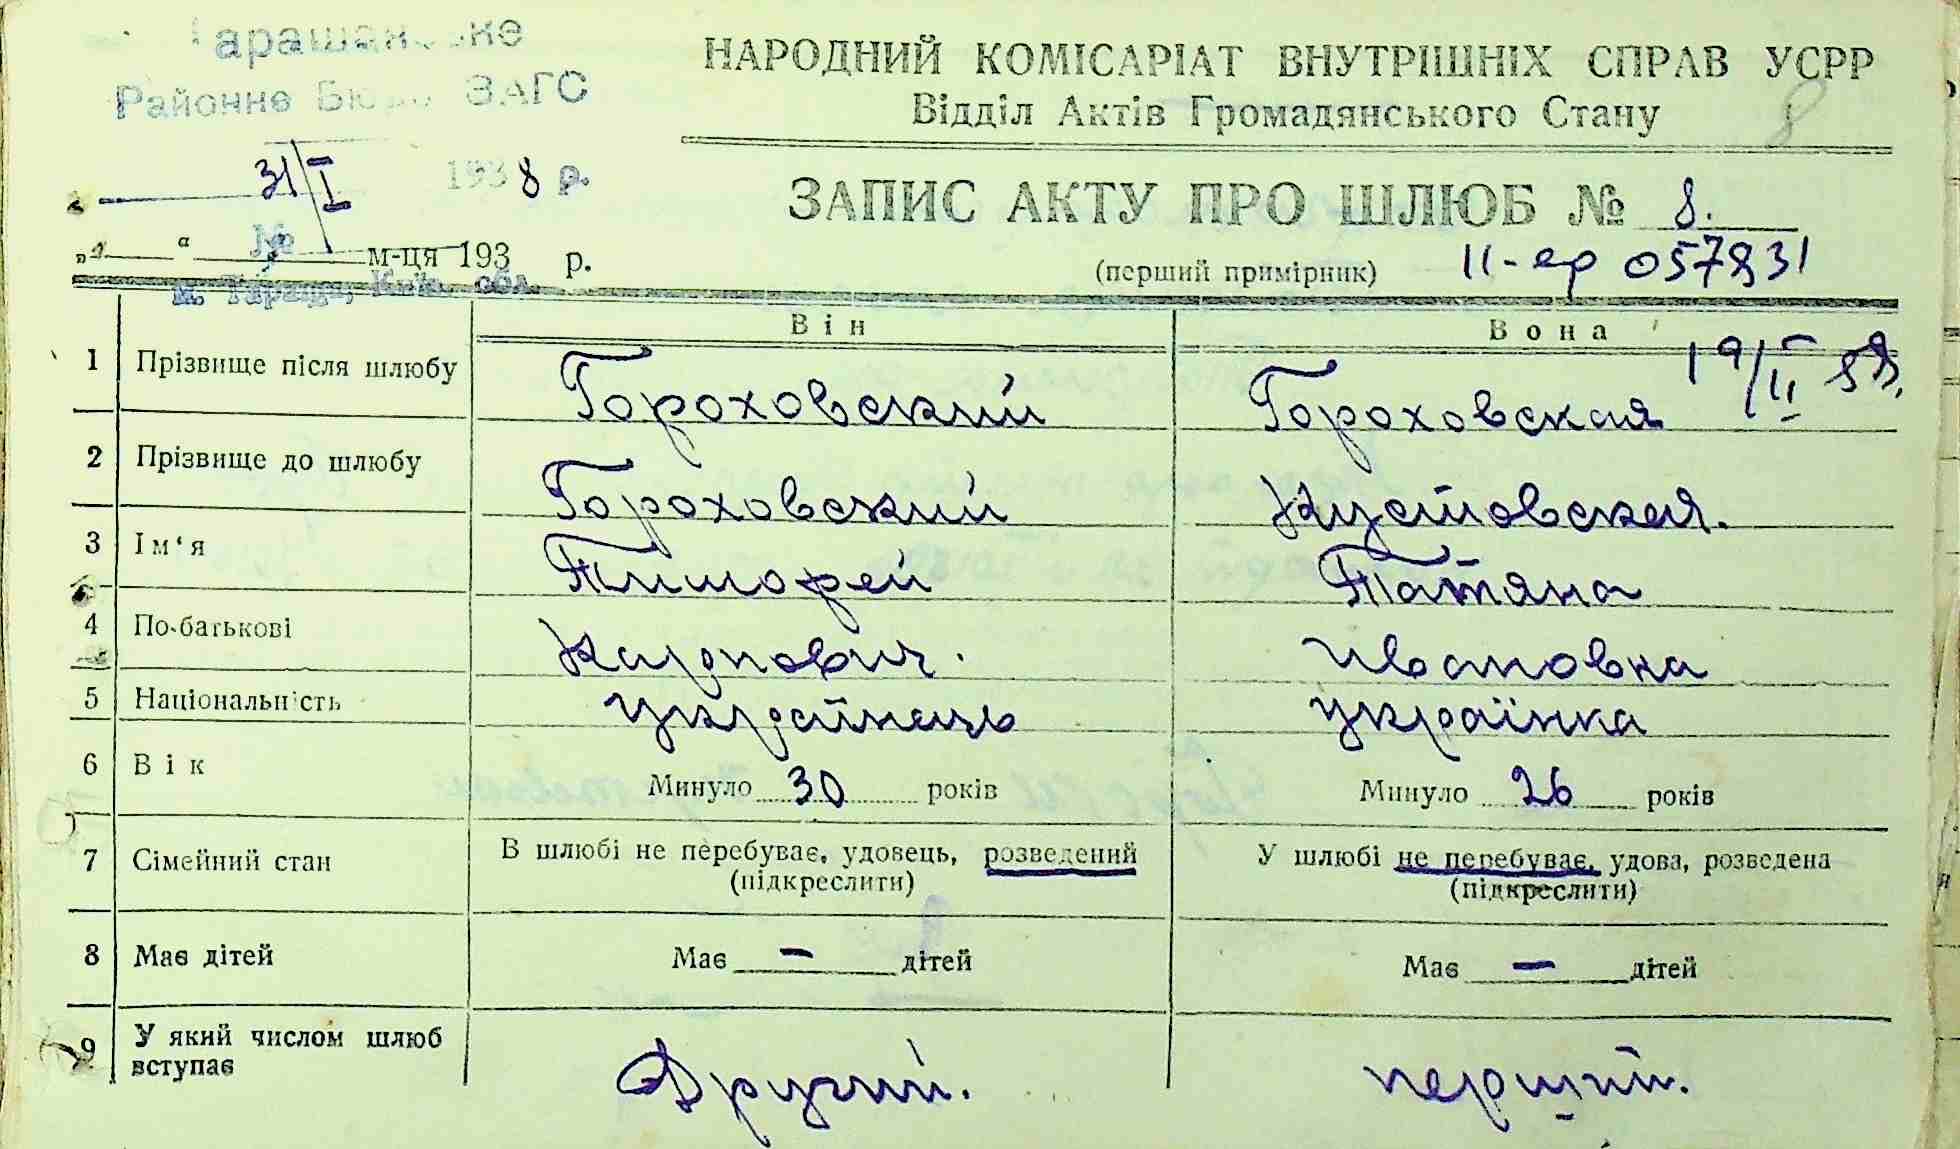 Районне Бюро ЗАГС
31/I 1938 р.
№
" " м-ця 193 р.
м. Тараща, Київ. обл.
НАРОДНИЙ КОМІСАРІАТ ВНУТРІШНІХ СПРАВ УСРР
Відділ Актів Громадянського Стану
8
ЗАПИС АКТУ ПРО ШЛЮБ № 8.
(перший примірник) II-ер 057831
Він Вона
19/II
1 Прізвище після шлюбу Гороховский Гороховская
2 Прізвище до шлюбу Гороховский Кустовская.
3 Ім‘я Тимофей Татяна
4 По-батькові Карпович. Ивановка
5 Національність українець українка
6 Вік Минуло 30 років Минуло 26 років
7 Сімейний стан В шлюбі не перебуває, удовець, розведений У шлюбі не перебуває, удова, розведена
(підкреслити) (підкреслити)
8 Має дітей Має – дітей Має – дітей
9 У який числом шлюб
вступає Другий. перший.